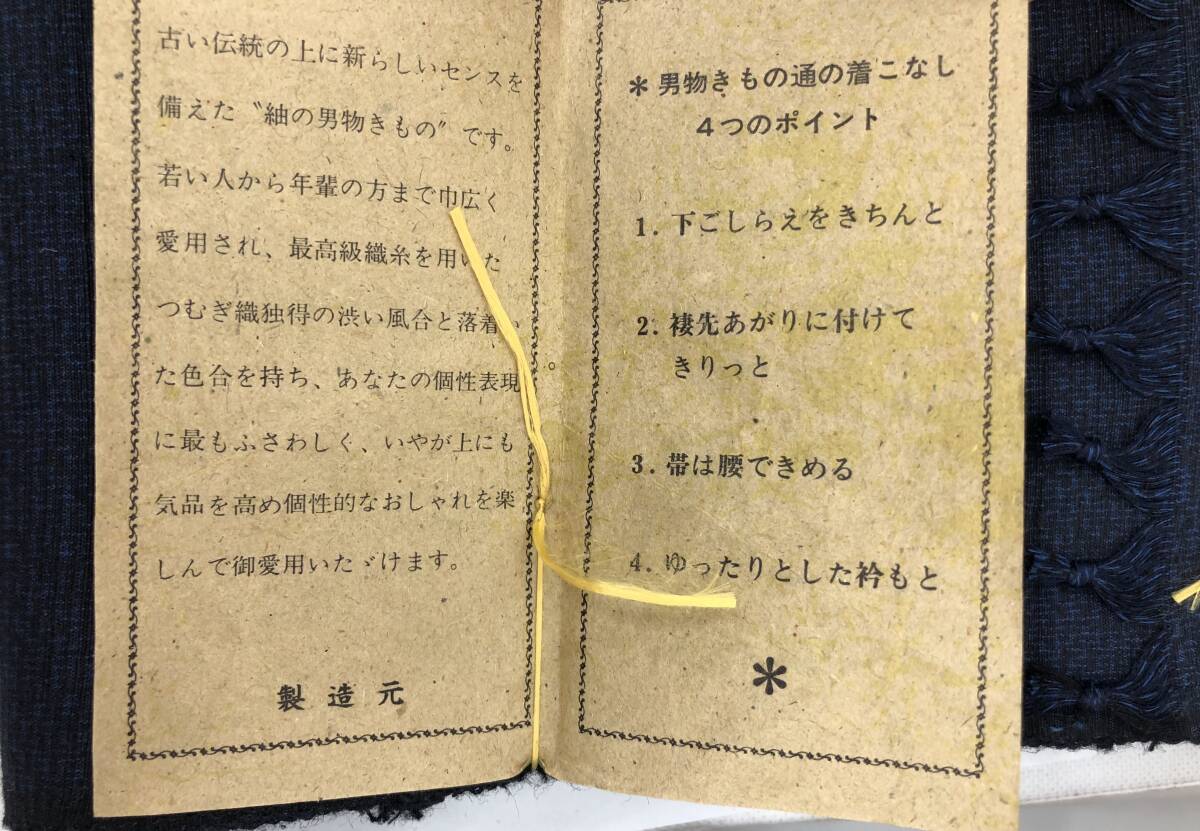 古い伝統の上に新らしいセンスを
備えた〝紬の男物きもの〟です。
若い人から年輩の方まで巾広く
愛用され、最高級織糸を用いた
つむぎ織独得の渋い風合と落着い
た色合を持ち、あなたの個性表現
に最もふさわしく、いやが上にも
気品を高め個性的なおしゃれを楽
しんで御愛用いたゞけます。
製造元
*男物きもの通の着こなし
4つのポイント
1. 下ごしらえをきちんと
2. 褄先あがりに付けて
きりっと
3. 帯は腰できめる
4. ゆったりとした衿もと
*